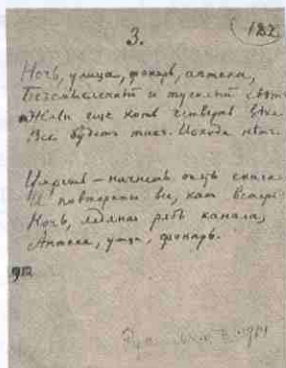 3.
Ночь, улица, фонарь, аптека,
Безсмысленный и тусклый свѣтъ.
Живи еще хоть четверть вѣка
Все будетъ такъ. Исхода нѣтъ.
Умрешь – начнешь опять сначала
И повторится все, какъ встарь:
Ночь, ледяная рябь канала,
Аптека, улица, фонарь.